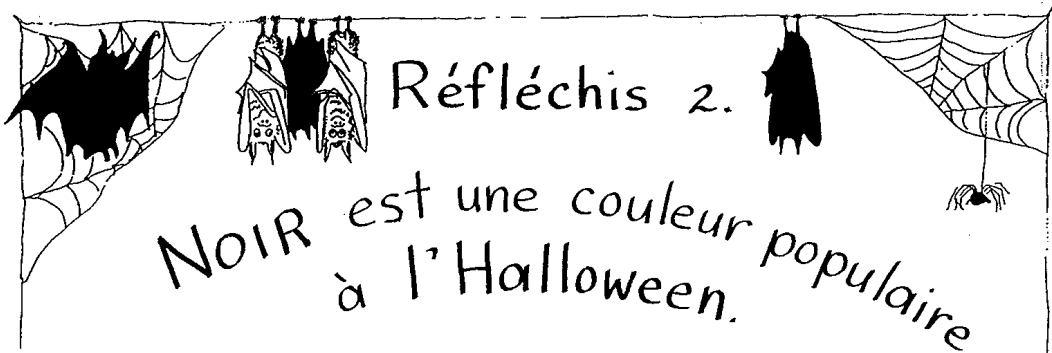 Réfléchis 2.
NOIR est une couleur populaire
à l'Halloween.